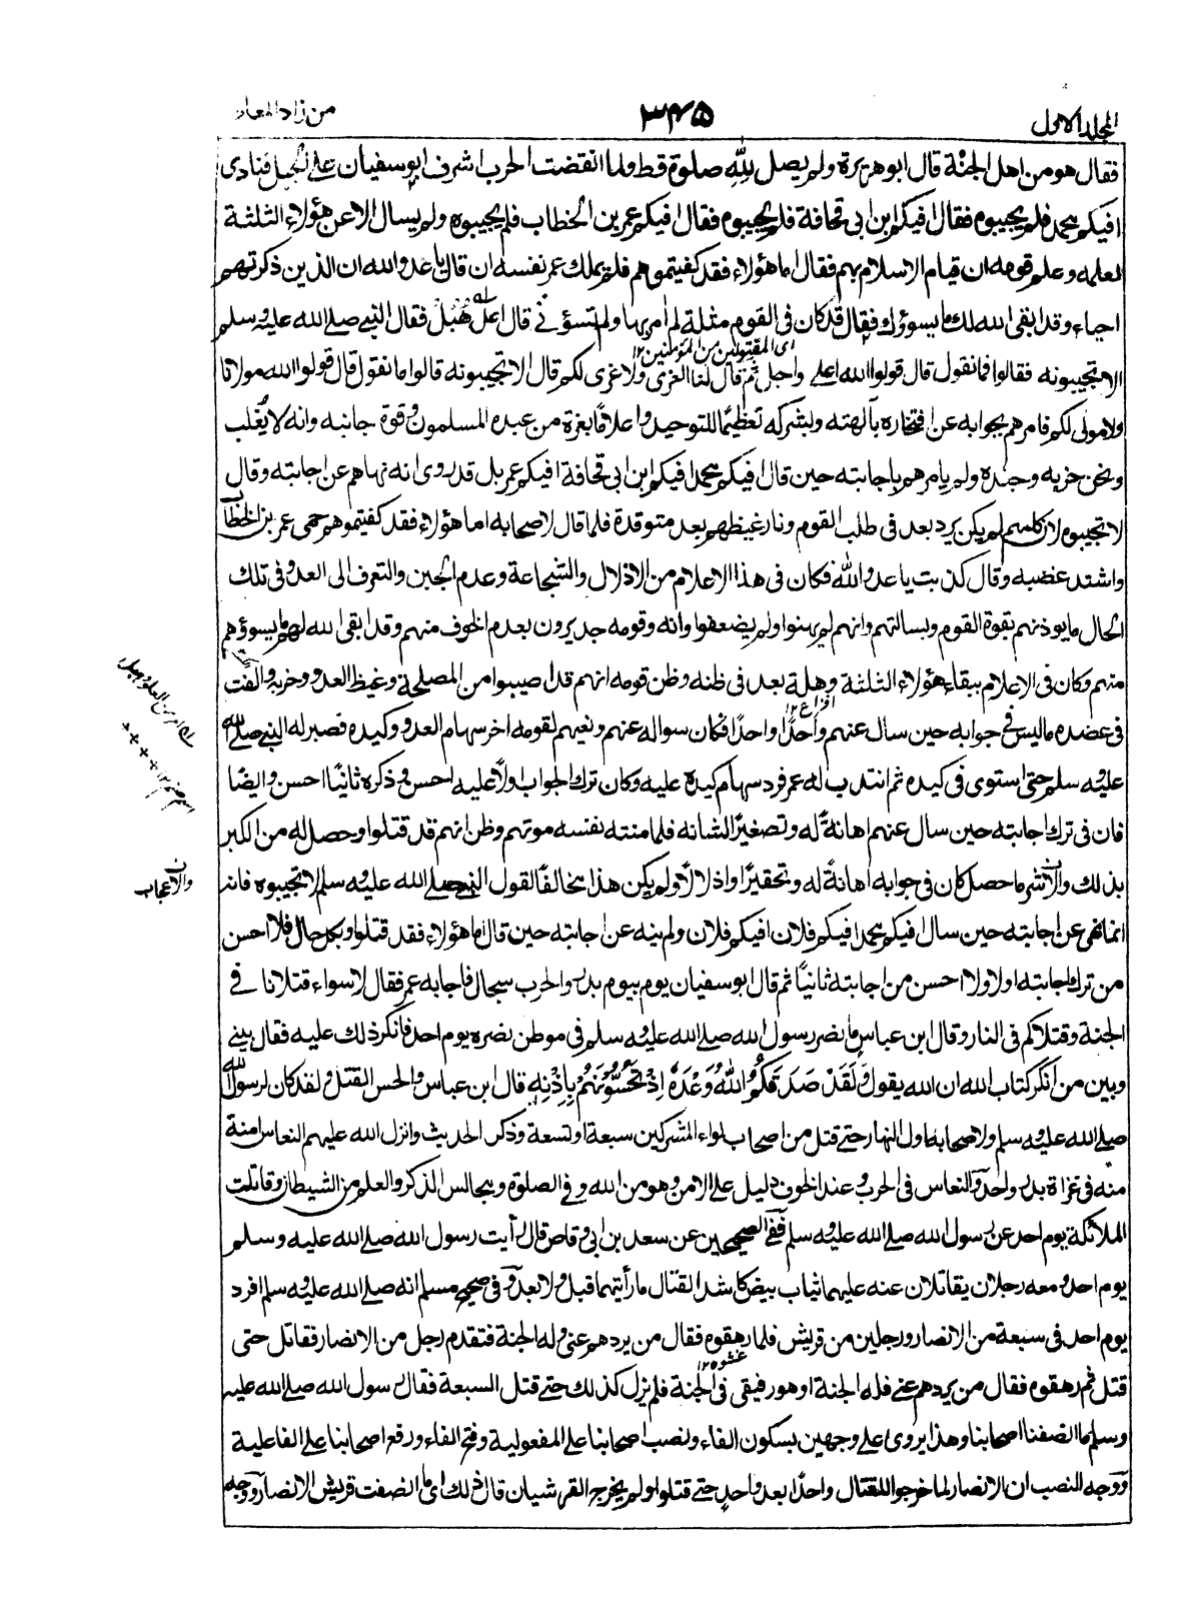 المجلد الاول
۳۴۵
من زاد المعاد
فقال هو من اهل الجنة قال ابو هريرة ولم يصل لله صلوة قط ولما انقضت الحرب اشرف ابو سفيان على الجبل فنادى
افيكم محمد فلم يجيبوه فقال افيكم ابن ابى قحافة فلم يجيبوه فقال افيكم عمر بن الخطاب فلم يجيبوه ولم يسال الا عن هؤلاء الثلثة
لعلمه وعلم قومه ان قيام الاسلام بهم فقال اما هؤلاء فقد كفيتموهم فلم يملك عمر نفسه ان قال يا عدو الله ان الذين ذكرتهم
احياء وقد ابقى الله لك ما يسوؤك فقال قد كان فى القوم مثلة لم امر بها ولم تسؤنى قال اعل هبل فقال النبى صلى الله عليه وسلم
اى المقتولين من المؤمنين ١٢
الا تجيبونه فقالوا فما نقول قال قولوا الله اعلى واجل ثم قال لنا العزى ولا عزى لكم قال الا تجيبونه قالوا ما نقول قال قولوا الله مولانا
ولا مولى لكم فامرهم بجوابه عن افتخاره بآلهته وبشركه تعظيما للتوحيد واعلاقا بعزة من عبده المسلمون وقوة جانبه وانه لا يغلب
ونحن حزبه وجنده ولم يامرهم باجابته حين قال افيكم محمد افيكم ابن ابى قحافة افيكم عمر بل قد روى انه نهاهم عن اجابته وقال
لا تجيبوه لان كلمهم لم يكن يرد بعد فى طلب القوم ونار غيظهم بعد متوقدة فلما قال لاصحابه اما هؤلاء فقد كفيتموهم حمى عمر بن الخطاب
واشتد غضبه وقال كذبت يا عدو الله فكان فى هذا الاعلام من الاذلال والشجاعة وعدم الجبن والتعرف الى العدو فى تلك
الحال ما يوذنهم بقوة القوم وبسالتهم وانهم لم يهنوا ولم يضعفوا وانه وقومه جديرون بعدم الخوف منهم وقد ابقى الله لهم ما يسوؤهم
منهم وكان فى الاعلام ببقاء هؤلاء الثلثة وهلة بعد فى ظنه وظن قومه انهم قد اصيبوا من المصلحة وغيظ العدو وحزبه والفت
افزاع ١٢
فى عضده ما ليس فى جوابه حين سال عنهم واحدًا واحدًا فكان سواله عنهم ونعيهم لقومه اخر سهام العدو وكيده فصبر له النبى صلى الله
عليه وسلم حتى استوى فى كيده ثم انتدب له عمر فرد سهام كيده عليه وكان ترك الجواب اولًا عليه احسن وذكره ثانيًا احسن وايضًا
فان فى ترك اجابته حين سال عنهم اهانةً له وتصغيرًا لشانه فلما منته نفسه موتهم وظن انهم قد قتلوا وحصل له من الكبر
بذلك والاشر ما حصل كان فى جوابه اهانةً له وتحقيرًا واذلالًا ولم يكن هذا مخالفًا لقول النبى صلى الله عليه وسلم لا تجيبوه فانه
انما نهى عن اجابته حين سال افيكم محمد افيكم فلان افيكم فلان ولم ينه عن اجابته حين قال اما هؤلاء فقد قتلوا وبكل حال فلا احسن
من ترك اجابته اولا ولا احسن من اجابته ثانيًا ثم قال ابو سفيان يوم بيوم بدر والحرب سجال فاجابه عمر فقال لا سواء قتلانا فى
الجنة وقتلاكم فى النار وقال ابن عباس ما نصر رسول الله صلى الله عليه وسلم فى موطن نصره يوم احد فانكر ذلك عليه فقال بينى
وبين من انكر كتاب الله ان الله يقول وَلَقَدْ صَدَقَكُمُ اللّٰهُ وَعْدَهٗ اِذْ تَحُسُّوْنَهُمْ بِاِذْنِهٖ قال ابن عباس والحس القتل ولقد كان لرسول الله
صلى الله عليه وسلم ولاصحابه اول النهار حتى قتل من اصحاب لواء المشركين سبعة او تسعة وذكر الحديث وانزل الله عليهم النعاس امنة
منه فى غزاة بدر واحد والنعاس فى الحرب وعند الخوف دليل على الامن وهو من الله وفى الصلوة ومجالس الذكر والعلم من الشيطان وقاتلت
الملائكة يوم احد عن رسول الله صلى الله عليه وسلم ففى الصحيحين عن سعد بن ابى وقاص قال رأيت رسول الله صلى الله عليه وسلم
يوم احد ومعه رجلان يقاتلان عنه عليهما ثياب بيض كاشد القتال ما رأيتهما قبل ولا بعد وفى صحيح مسلم انه صلى الله عليه وسلم افرد
يوم احد فى سبعة من الانصار ورجلين من قريش فلما رهقوه فقال من يردهم عنى وله الجنة فتقدم رجل من الانصار فقاتل حتى
غشوه ١٢
قتل ثم رهقوه فقال من يردهم عنى فله الجنة او هو رفيقى فى الجنة فلم يزل كذلك حتى قتل السبعة فقال رسول الله صلى الله عليه
وسلم ما انصفنا اصحابنا وهذا يروى على وجهين بسكون الفاء ونصب اصحابنا على المفعولية وفتح الفاء ورفع اصحابنا على الفاعلية
ووجه النصب ان الانصار لما خرجوا للقتال واحدًا بعد واحد حتى قتلوا ولم يخرج القرشيان قال ذلك اى ما انصفت قريش الانصار ووجه
والاعجاب